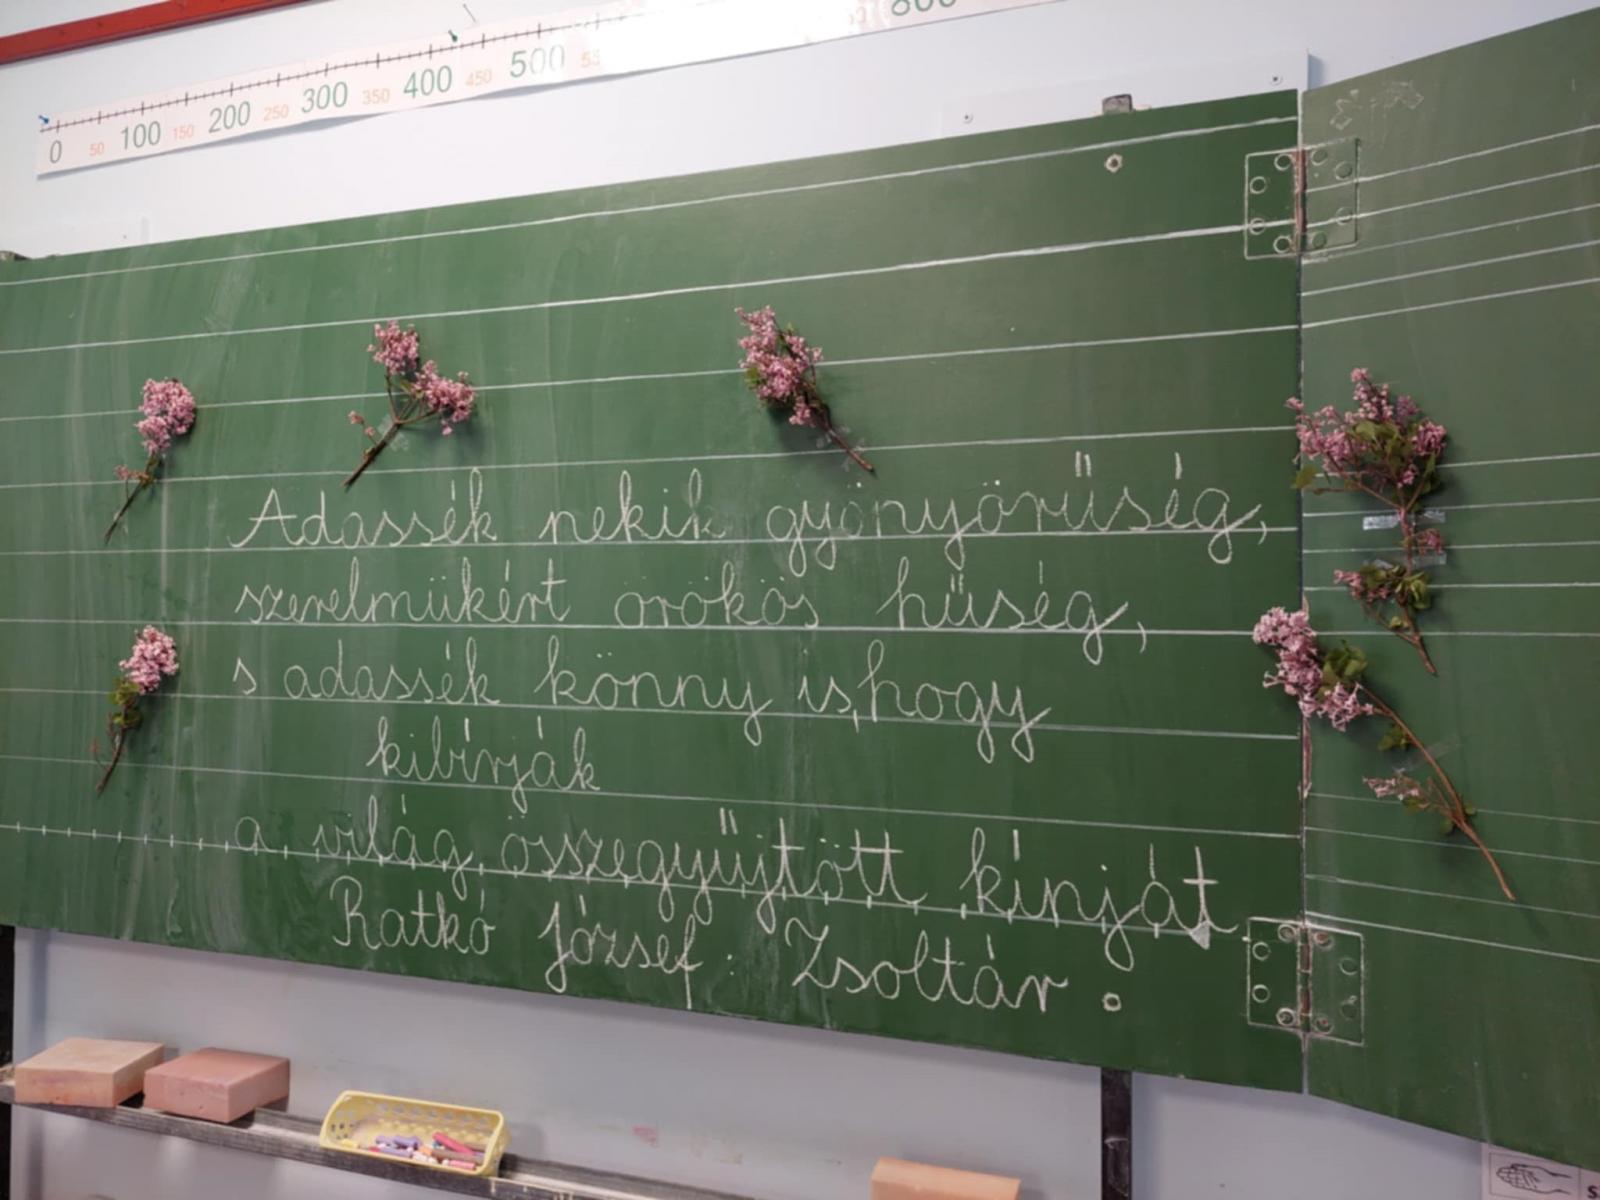 0 50 100 150 200 250 300 350 400 450 500 55 800
Adassék nekik gyönyörűség,
szerelmükért örökös hűség,
s adassék könny is, hogy
kibírják
a világ összegyűjtött kínját
Ratkó József: Zsoltár